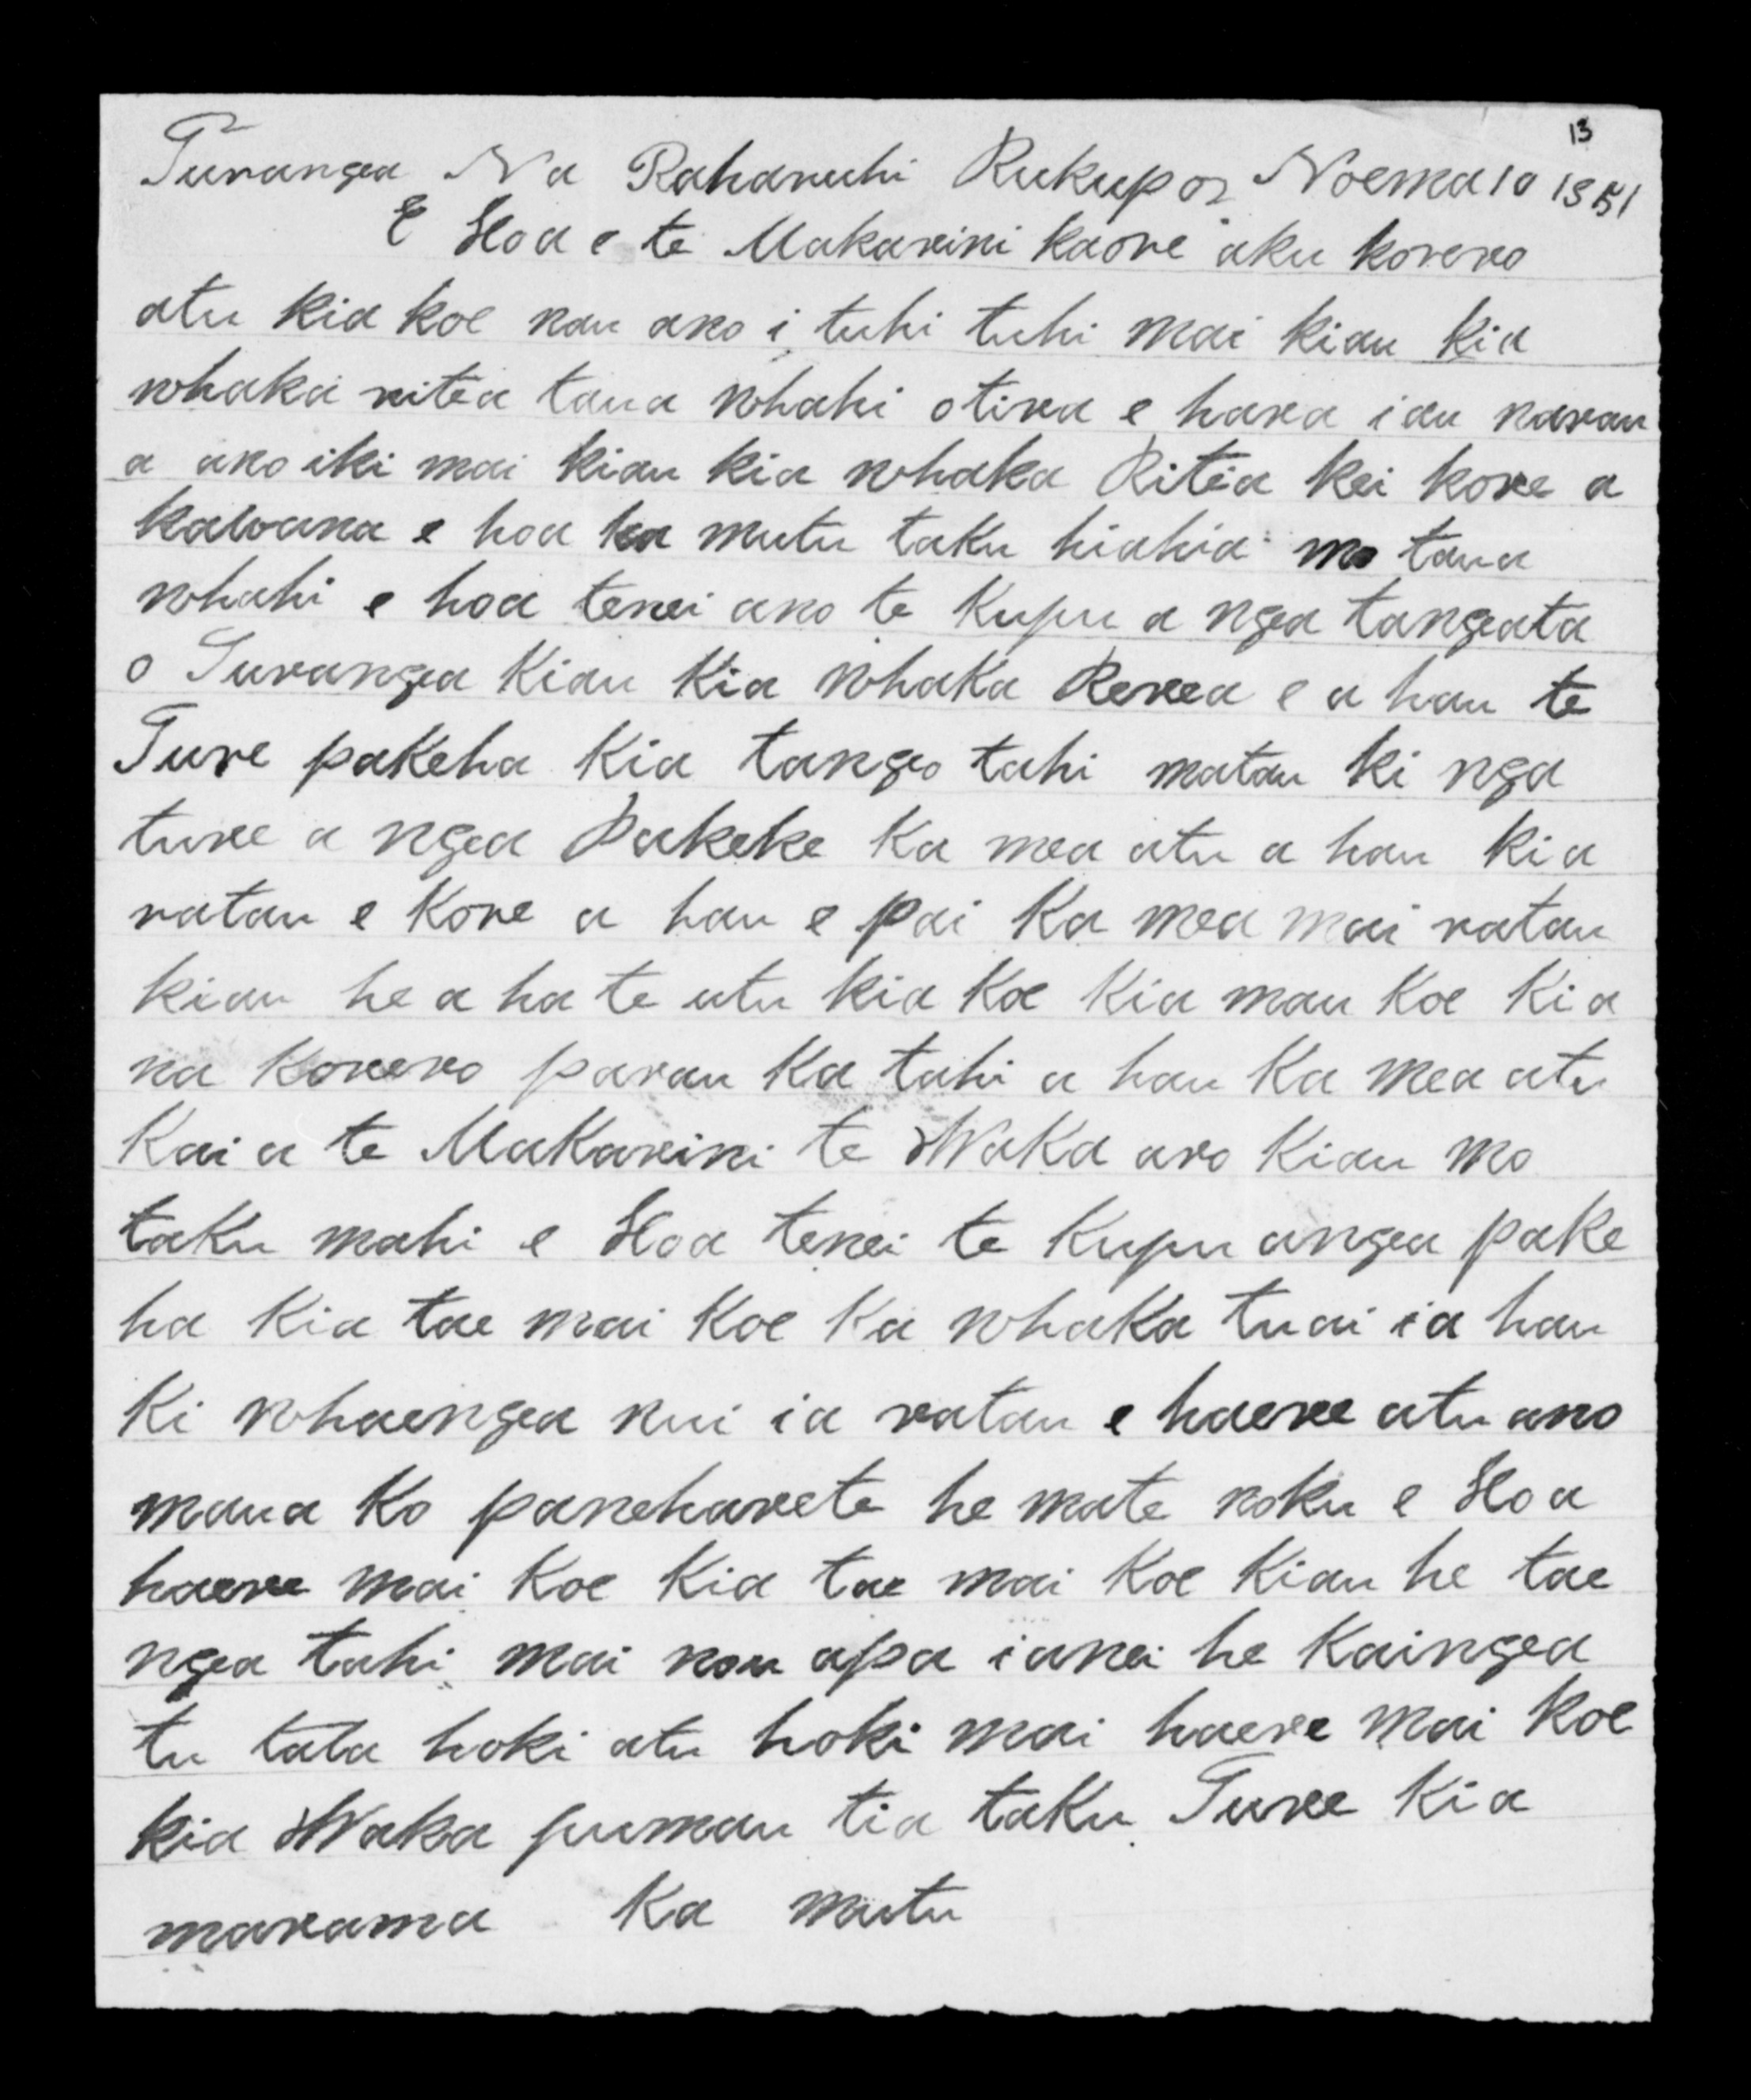 13
Turanga Na Raharuhi Rukupo Noema 10 1851
E Hoa e te Makarini kaore aku korero
atu kia koe nau ano i tuhi tuhi mai kiau kia
whaka ritea taua whahi otira e hara iau narau
a ano iki mai kiau kia whaka Ritia kei kore a
kawana e hoa ka mutu taku hiahia mo taua
whahi e hoa tenei ano te Kupu a nga tangata
o Turanga Kiau Kia whaka Rerea e a hau te
Ture pakeha Kia tango tahi matau ki nga
ture a nga Pakeke Ka mea atu a hau kia
ratau e Kore a hau e pai Ka mea mai ratau
kiau he a ha te utu kia Koe Kia mau Koe Kia
na Korero parau Ka tahi a hau Ka mea atu
Kai a te Makarini te Waka aro Kiau mo
taku mahi e Hoa tenei te Kupu anga pake
ha Kia tae mai Koe Ka whaka tuai ia hau
Ki whaenga nui ia ratau e haere atu ano
maua Ko paneharete he mate noku e Hoa
haere mai Koe Kia tae mai Koe Kiau he tae
nga tahi mai nou apa ianei he Kainga
tu tata hoki atu hoki mai haere mai Koe
kia Waka pumau tia taku Ture Kia
marama Ka mutu